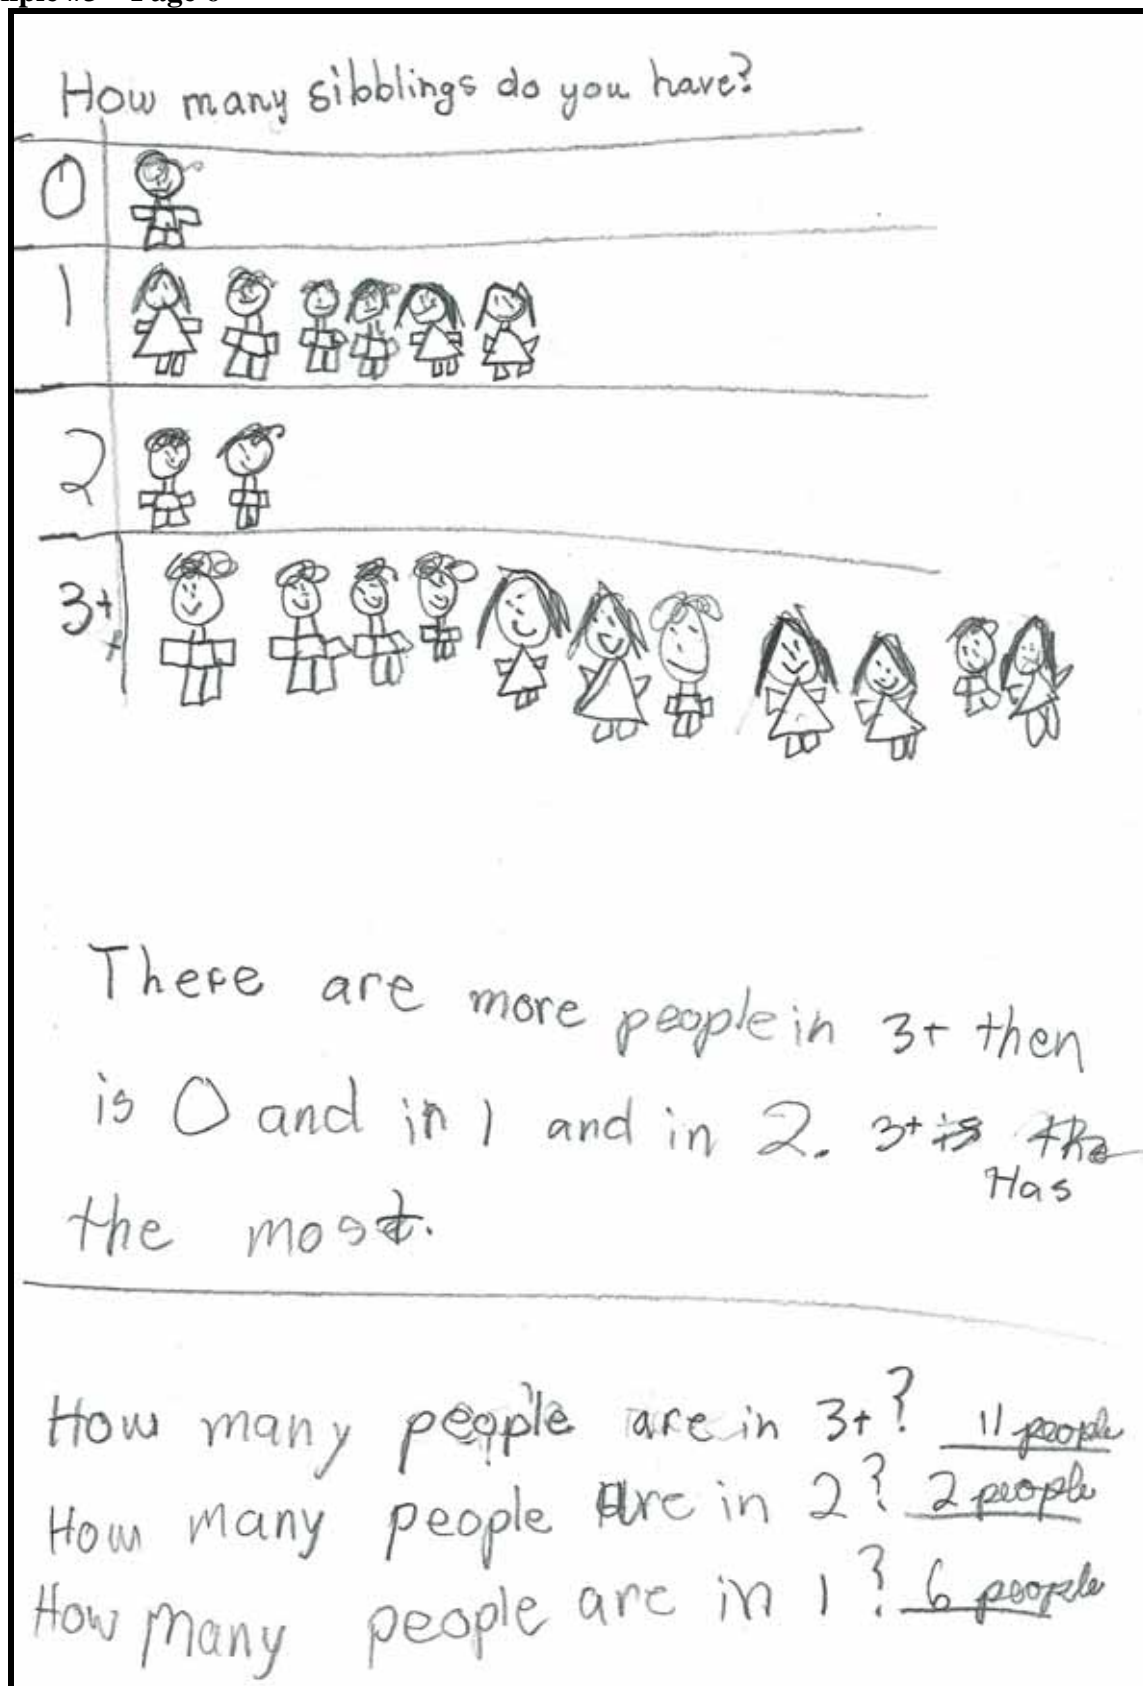 How many sibblings do you have?
0
1
2
3+
There are more people in 3+ then
is 0 and in 1 and in 2. 3+ is the
Has
the most.
How many people are in 3+? 11 people
How many people are in 2? 2 people
How many people are in 1? 6 people